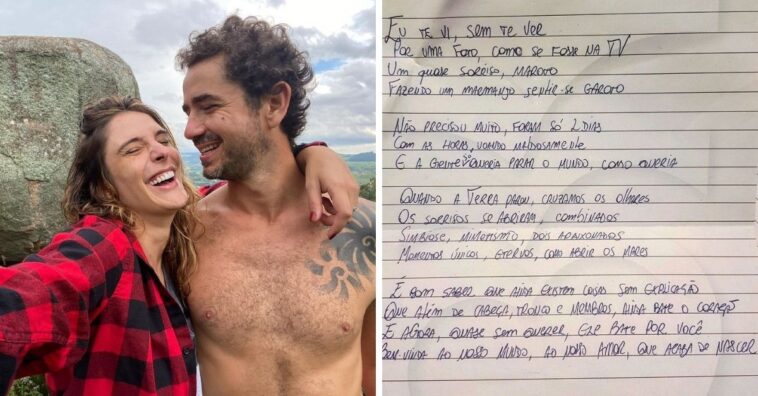 Eu te vi, sem te ver
Por uma foto como se fosse na TV
Um quase sorriso, maroto
Fazendo um marmanjo sentir-se garoto
Não precisou muito, foram só 2 dias
Com as horas, voando maldosamente
E a gente só queria parar o mundo, como queria
Quando a Terra parou, cruzamos os olhares
Os sorrisos se abriram, combinados
Simbiose, mimetismo, dois apaixonados
Momentos únicos, eternos, como abrir os mares
É bom saber que ainda existem coisas sem explicação
Que além de cabeça, tronco e membros, ainda bate o coração
E agora, quase sem querer, ele bate por você
Bem vinda ao nosso mundo, ao nosso amor, que acaba de nascer